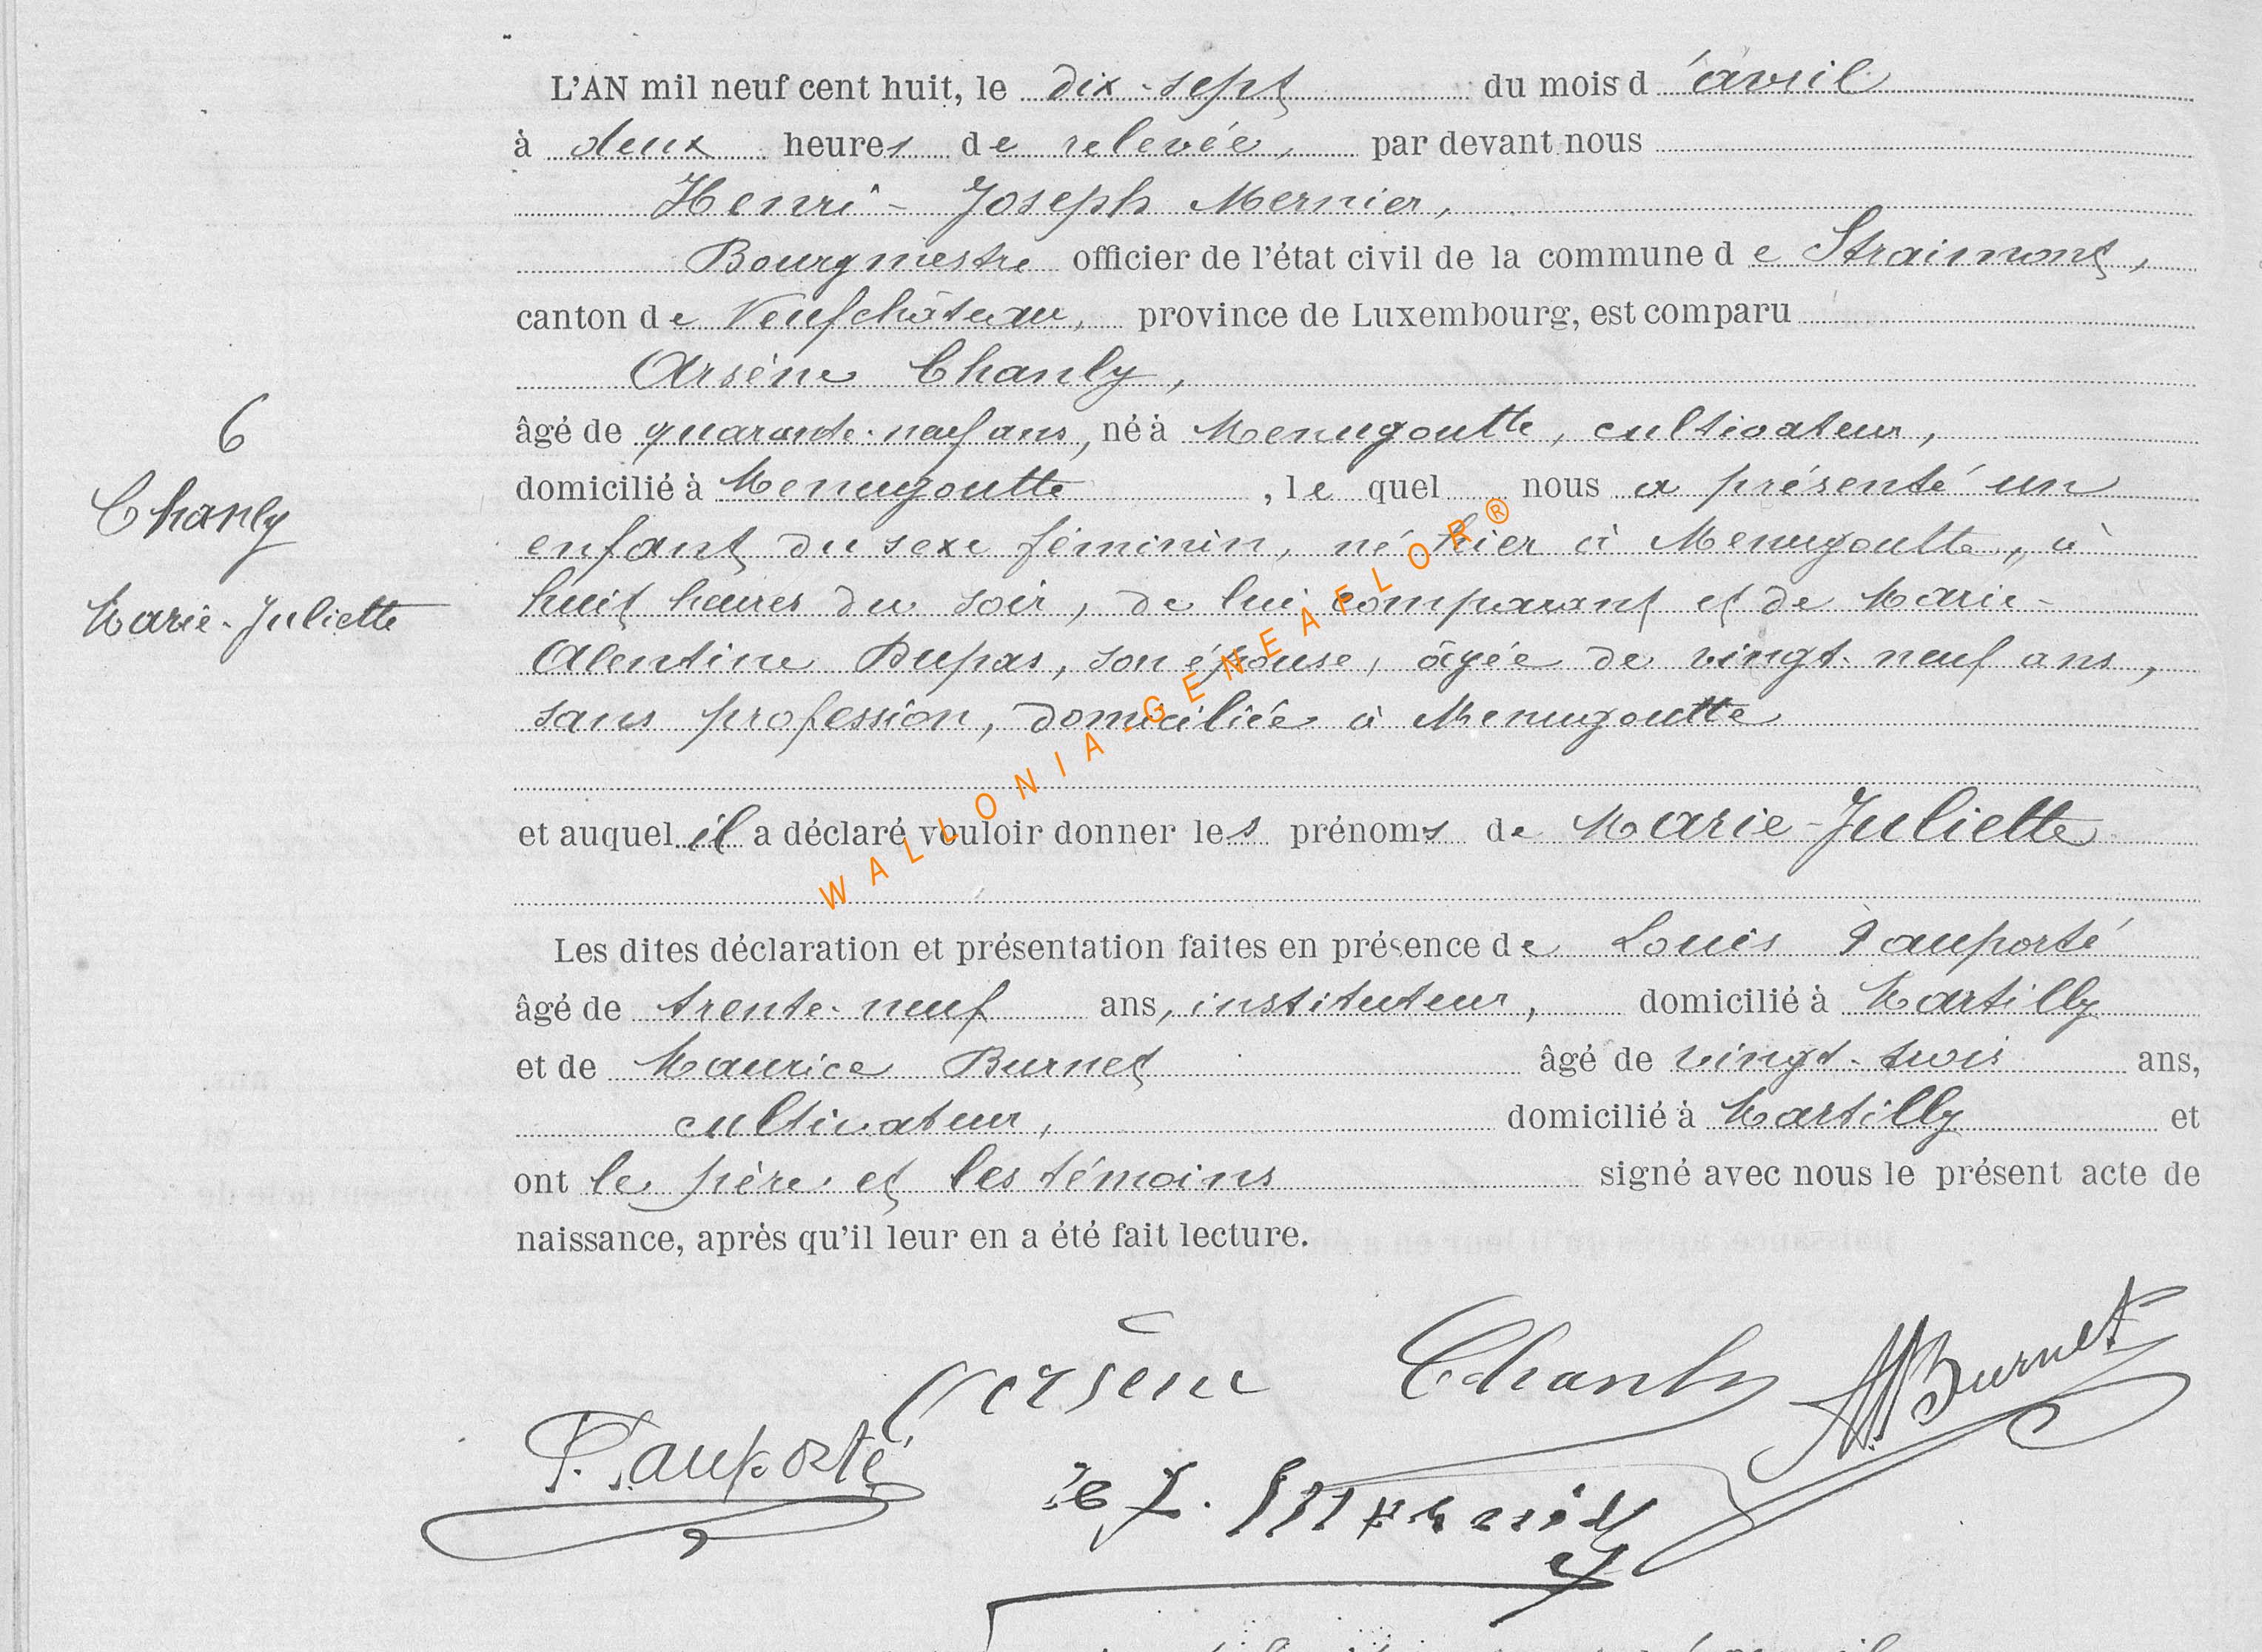 L'AN mil neuf cent huit, le dix-sept du mois d'avril
à deux heures de relevée, par devant nous
Henri-Joseph Mernier,
Bourgmestre officier de l'état civil de la commune de Straimont,
canton de Neufchâteau, province de Luxembourg, est comparu
Arsène Chanly,
âgé de quarante-neuf ans, né à Menugoutte, cultivateur,
domicilié à Menugoutte, le quel nous a présenté un
enfant du sexe féminin, né hier à Menugoutte, à
huit heures du soir, de lui comparant et de Marie-
Alentine Dupas, son épouse, âgée de vingt-neuf ans,
sans profession, domiciliée à Menugoutte
et auquel il a déclaré vouloir donner les prénoms de Marie-Juliette
Les dites déclaration et présentation faites en présence de Louis Pauporté
âgé de trente-neuf ans, instituteur, domicilié à Martilly
et de Maurice Burnet âgé de vingt-trois ans,
cultivateur, domicilié à Martilly et
ont le père et les témoins signé avec nous le présent acte de
naissance, après qu'il leur en a été fait lecture.
6
Chanly
Marie-Juliette
Arsène Chanly
MBurnet
Pauporté
H J. Mernier
WALLONIA-GENEAFLOR®